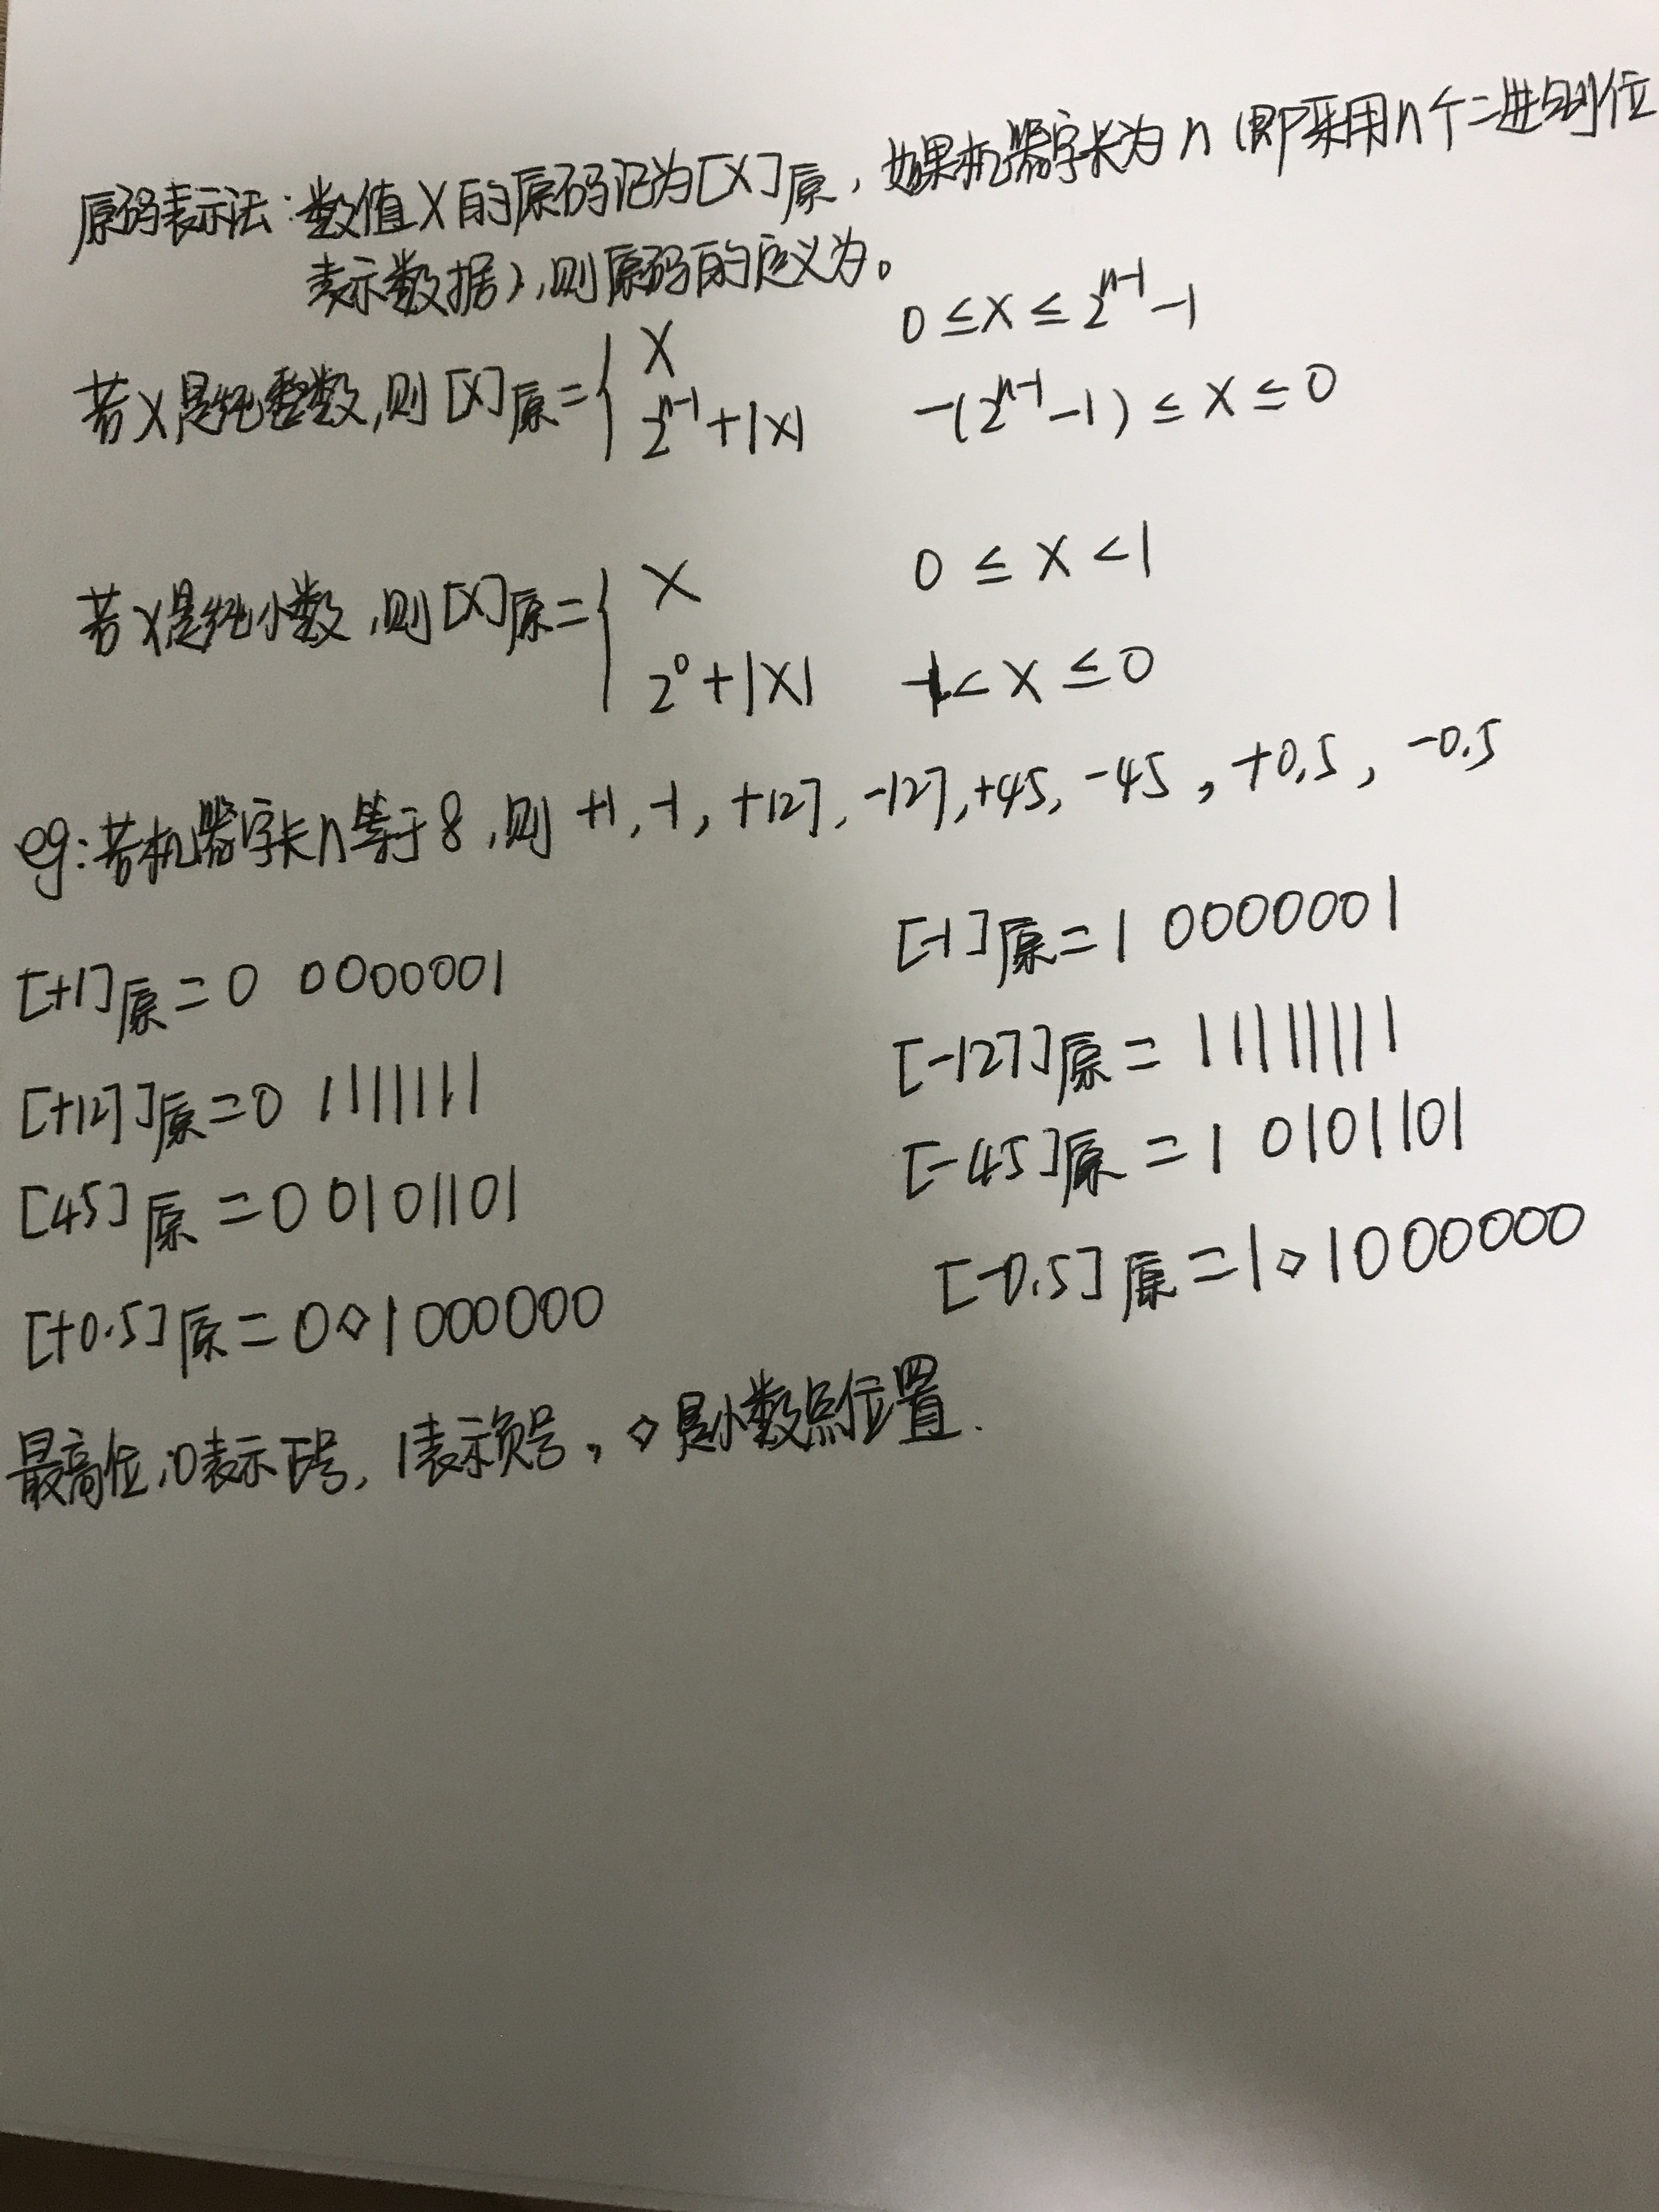 原码表示法:数值X的原码记为[X]原,如果机器字长为n(即采用n个二进制位
表示数据),则原码的定义为。
若X是纯整数,则[X]原={ X 0≤X≤2^(n-1)-1
2^(n-1)+|X| -(2^(n-1)-1)≤X≤0
若X是纯小数,则[X]原={ X 0≤X<1
2^0+|X| -1<X≤0
eg:若机器字长n等于8,则 +1,-1,+127,-127,+45,-45,+0.5,-0.5
[+1]原=0 0000001 [-1]原=1 0000001
[+127]原=0 1111111 [-127]原=11111111
[45]原=0 0101101 [-45]原=1 0101101
[+0.5]原=0◇1000000 [-0.5]原=1◇1000000
最高位,0表示正号,1表示负号,◇是小数点位置.